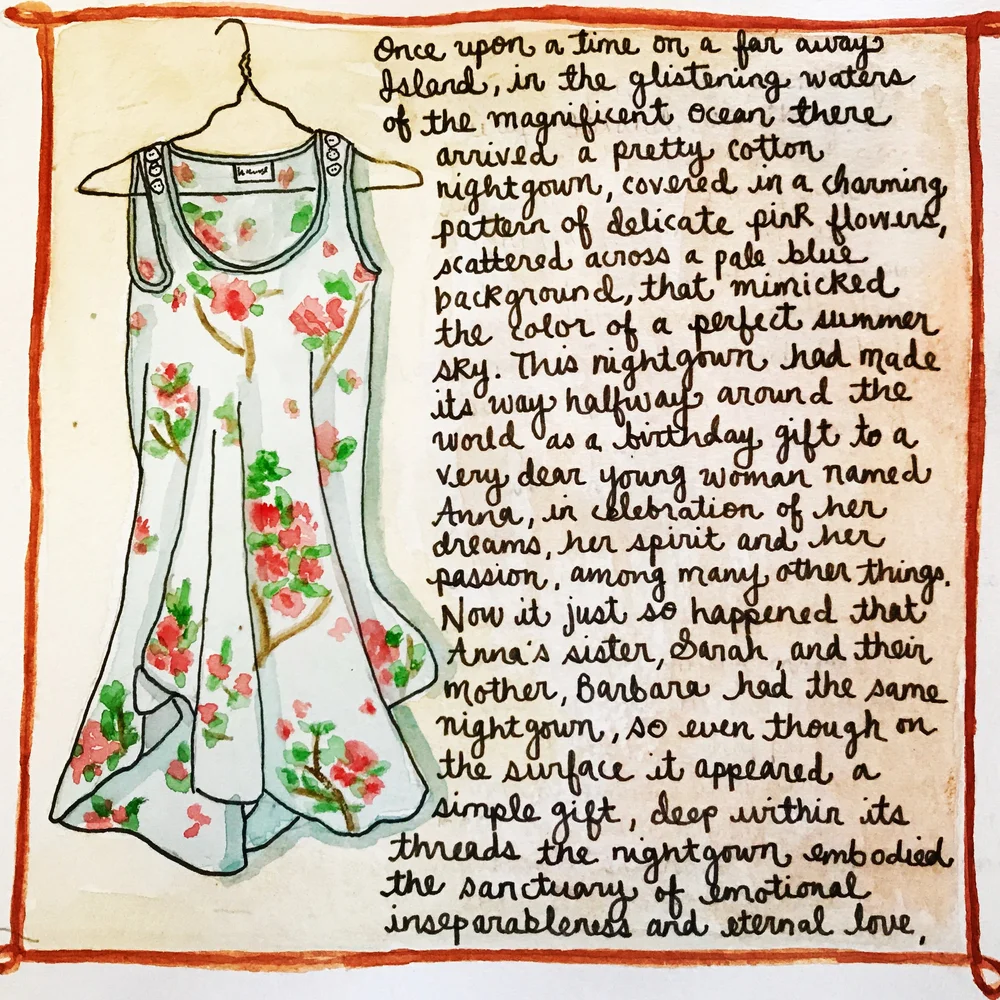 Once upon a time on a far away
Island, in the glistening waters
of the magnificent ocean there
arrived a pretty cotton
nightgown, covered in a charming
pattern of delicate pink flowers,
scattered across a pale blue
background, that mimicked
the color of a perfect summer
sky. This nightgown had made
its way halfway around the
world as a birthday gift to a
very dear young woman named
Anna, in celebration of her
dreams, her spirit and her
passion, among many other things.
Now it just so happened that
Anna's sister, Sarah, and their
mother, Barbara had the same
nightgown, so even though on
the surface it appeared a
simple gift, deep within its
threads the nightgown embodied
the sanctuary of emotional
inseparableness and eternal love.